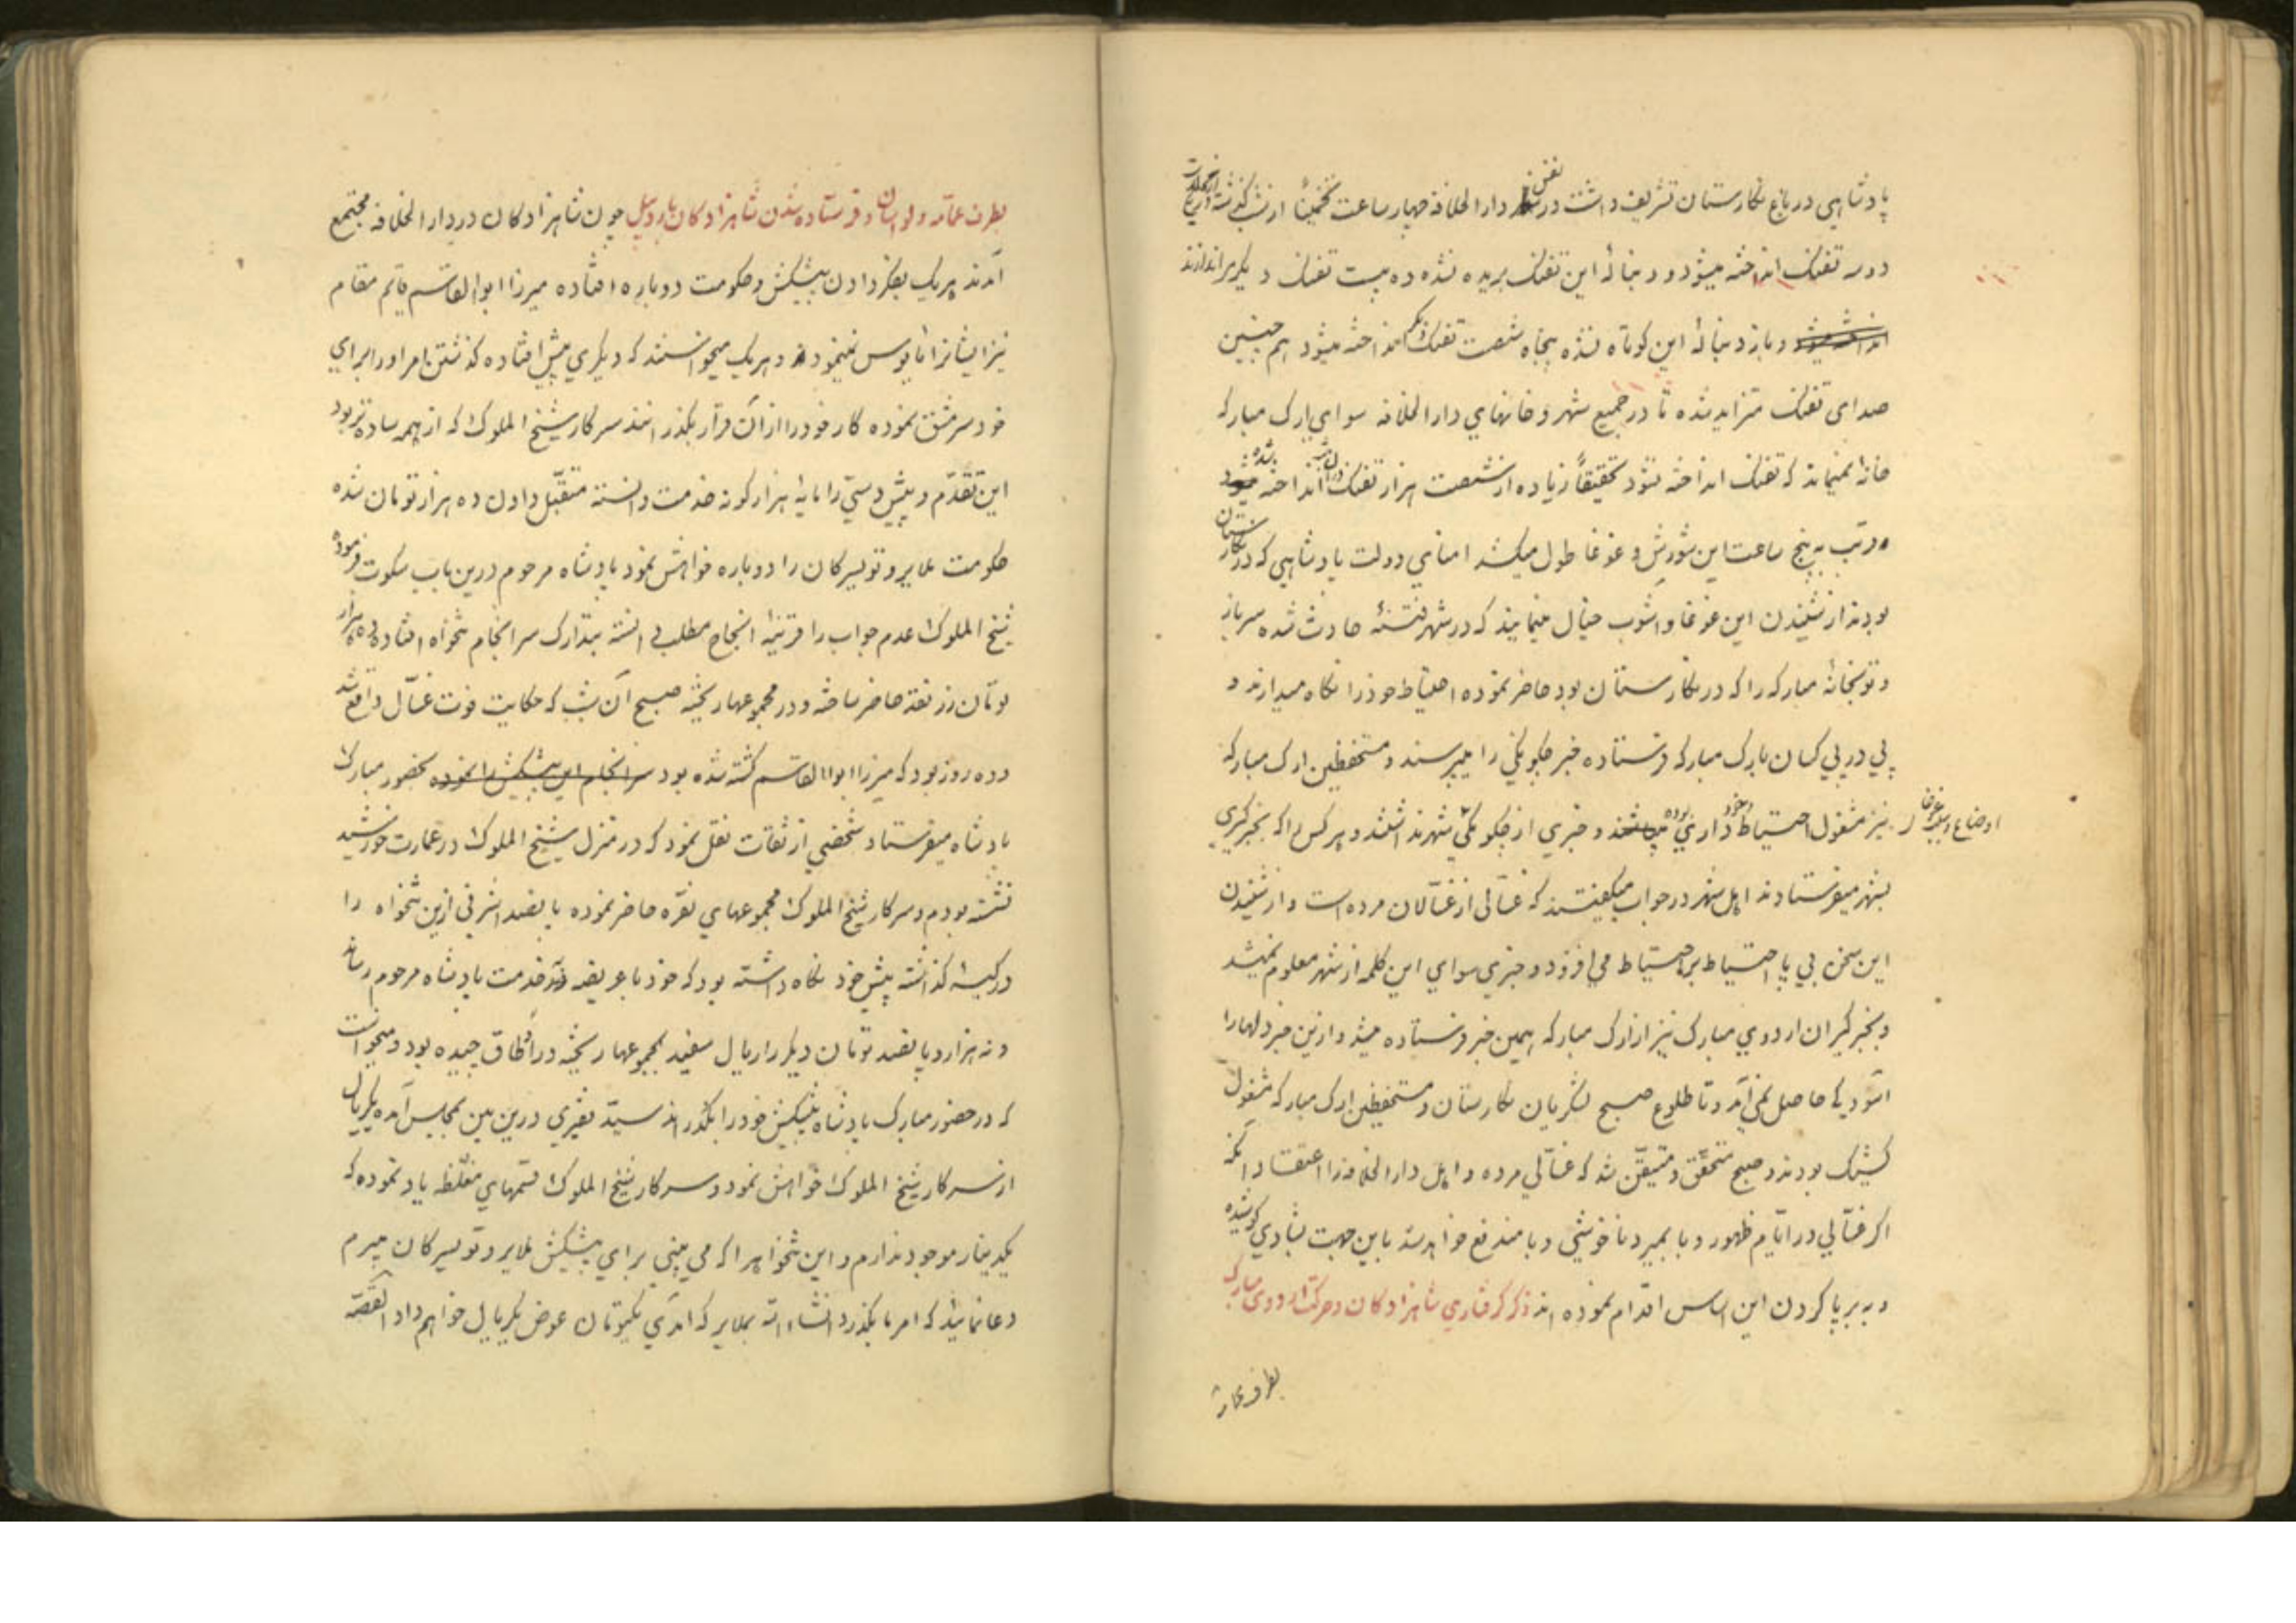 پادشاهی در باغ نگارستان تشریف داشت در نفس دار الخلافه چهار ساعت تخمیناً از شب گذشته
دو سه تفنک انداخته میشود و دنبالهٔ این تفنک بریده نشده ده بیست تفنک دیگر میاندازند
و باز دنبالهٔ این کوتاه نشده پنجاه شصت تفنک دیگر انداخته میشود هم چنین
صدای تفنک متزاید شده تا در جمیع شهر و خانهای دار الخلافه سوای ارک مبارکه
خانهٔ نمیماند که تفنک انداخته نشود تحقیقاً زیاده از شصت هزار تفنک در آن شب انداخته شده
قریب به پنج ساعت این شورش و غوغا طول میکشد امنای دولت پادشاهی که در نگارستان
بودند از شنیدن این غوغا و آشوب خیال مینمایند که در شهر فتنهٔ حادث شده سرباز
و توپخانهٔ مبارکه را که در نگارستان بود حاضر نموده احتیاط خود را نگاه میدارند و
پی در پی کسان بارک مبارکه فرستاده خبر چگونگی را میپرسند و مستحفظین ارک مبارکه
نیز مشغول احتیاط و خود داری بوده و خبری از چگونگی شهر نداشتند و هر کس را که بخبر گیری
اوضاع و سبب غوغا
بشهر میفرستادند اهل شهر در جواب میگفتند که غسالی از غسالان مرده است و از شنیدن
این سخن بی پا احتیاط بر احتیاط می افزود و خبری سوای این کلمه از شهر معلوم نمیشد
و بخبر گیران اردوی مبارک نیز از ارک مبارکه همین خبر فرستاده میشد و ازین خبر دلها را
آسودگی حاصل نمی آمد و تا طلوع صبح لشکریان نگارستان و مستحفظین ارک مبارکه مشغول
کشیک بودند و صبح متحقق و متیقن شد که غسالی مرده و اهل دار الخلافه را اعتقاد آنکه
اگر غسالی در ایام ظهور وبا بمیرد ناخوشی وبا مندفع خواهد شد باین جهت بشادی کوشیده
و به برپا کردن این اساس اقدام نموده اند ذکر گرفتاری شاهزادگان و حرکت اردوی مبارک
بطرف عمارت
بطرف عمارت و لواسان و فرستاده شدن شاهزادگان باردبیل چون شاهزادگان در دار الخلافه مجتمع
آمدند هر یک بفکر دادن پیشکش و حکومت دوباره افتاده میرزا ابو القاسم قایم مقام
نیز ایشانرا مایوس نمینمود و هر یک میخواستند که دیگری پیش افتاده گذشتن امر او را برای
خود سرمشق نموده کار خود را از آن قرار بگذرانند سرکار شیخ الملوک که از همه ساده تر بود
این تقدم و پیش دستی را مایهٔ هزار گونه خدمت دانسته متقبل دادن ده هزار تومان شده
حکومت ملایر و تویسرکان را دوباره خواهش نمود پادشاه مرحوم درین باب سکوت فرموده
شیخ الملوک عدم جواب را قرینهٔ انجاح مطلب دانسته بتدارک سرانجام تنخواه افتاده ده هزار
تومان زر نقد حاضر ساخته و در مجموعها ریخته صبح آن شب که حکایت فوت غسال واقع شد
و ده روز بود که میرزا ابو القاسم کشته شده بود سرانجام این پیشکش را نموده بحضور مبارک
پادشاه میفرستاد شخصی از ثقات نقل نمود که در منزل شیخ الملوک در عمارت خورشید
نشسته بودم و سرکار شیخ الملوک مجموعهای نقره حاضر نموده پانصد اشرفی ازین تنخواه را
در کیسه گذاشته پیش خود نگاه داشته بود که خود با عریضه خدمت پادشاه مرحوم رساند
و نه هزار و پانصد تومان دیگر را ریال سفید بمجموعها ریخته در اطاق چیده بود و میخواست
که در حضور مبارک پادشاه پیشکش خود را بگذراند سید فقیری درین بین بمجلس آمده یکریال
از سرکار شیخ الملوک خواهش نمود و سرکار شیخ الملوک قسمهای مغلظه یاد نموده که
یکدینار موجود ندارم و این تنخواهی را که می بینی برای پیشکش ملایر و تویسرکان میبرم
دعا نمائید که امر ما بگذرد انشاء الله بملایر که آمدی یکتومان عوض یکریال خواهم داد القصه